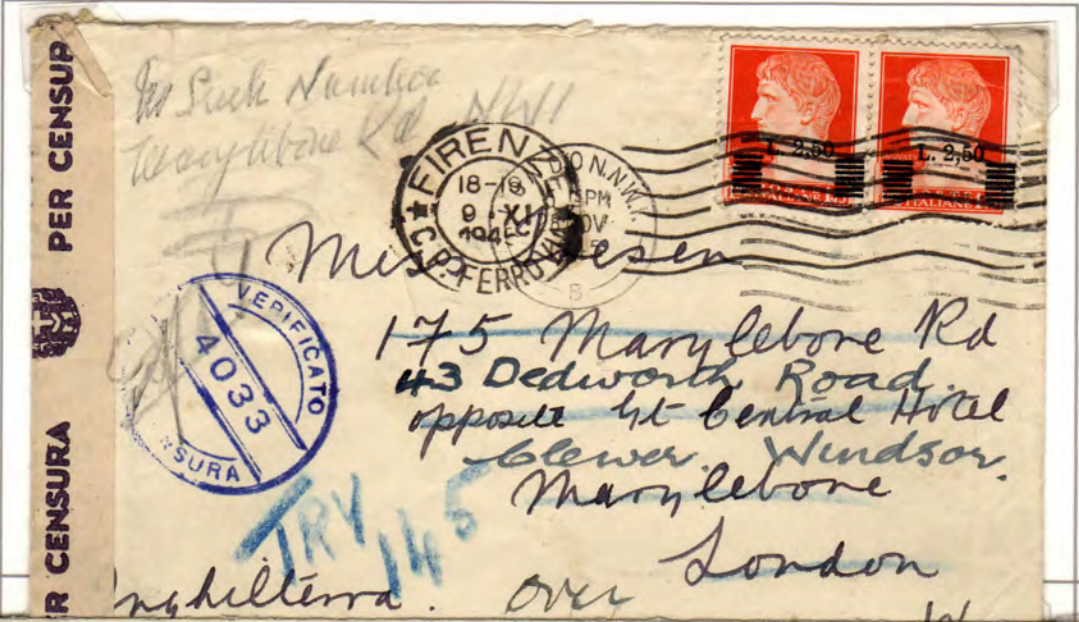 PER CENSUR
R CENSURA
No Such Number
Marylebone Rd NW1
FIRENZE
18-19
9 -XI
194
C.P. FERROV
ON. N.W.1.
PM
NOV
5
8
L. 2,50
L. 2,50
ITALIANE
VERIFICATO
4033
NSURA
Miss
175 Marylebone Rd
43 Dedworth Road.
opposite Gt Central Hotel
Clewer. Windsor.
Marylebone
TRY
145
London
Inghilterra. Over
W